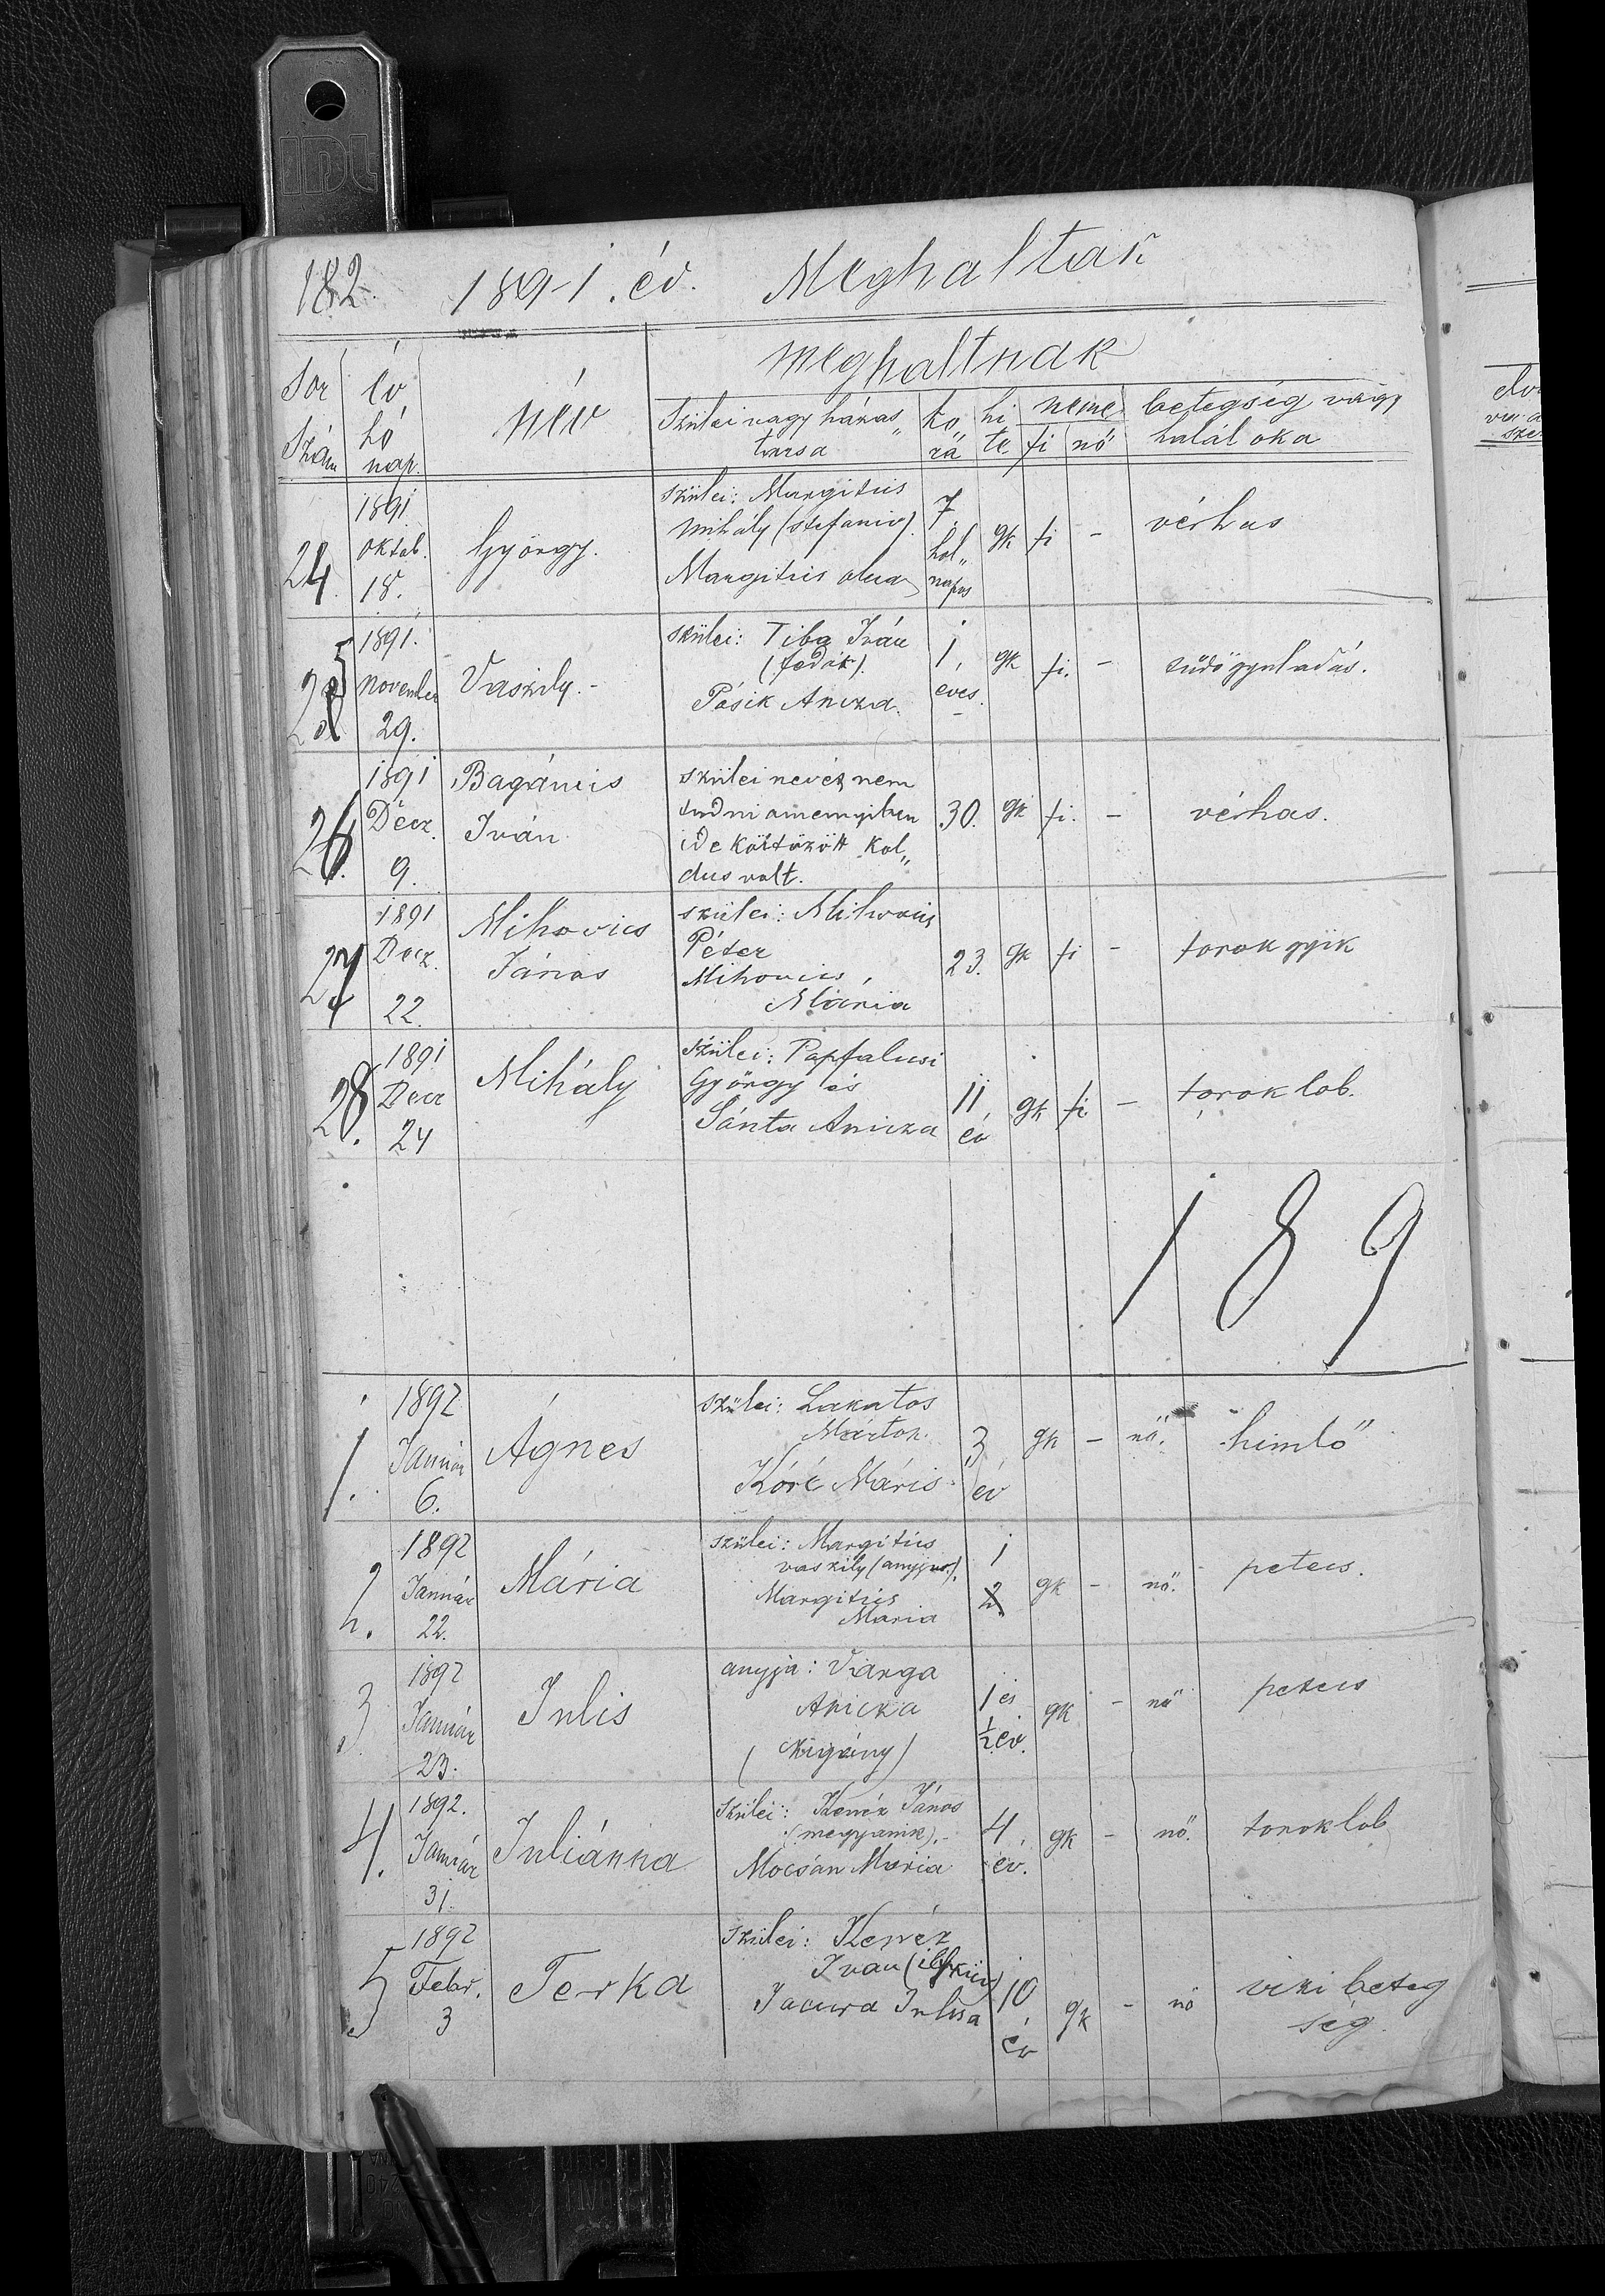 182. 1891. év. Meghaltak
meghaltnak
Sor Szám
év hó nap.
név
Szülei vagy házas„ társa
ko„ ra
hi te.
neme
fi nő
betegség vagy halál oka
24. 1891 Oktob. 18.
György.
szülei: Margitics
Mihály (stefaniv).
Margitics
7 hol„ napos
gk fi –
vérhas
25 1891. November 29.
Vaszily. –
szülei: Tiba Iván
(fedák).
Pásik Anicza.
1, eves.
gk fi. –
tüdőgyuladás.
26. 1891 Decz. 9.
Bagánics
Iván
szülei nevét nem
tudni amennyiben
ide költözött kol„
dus volt.
30. gk fi. –
vérhas.
27 1891 Decz. 22.
Mihovics
János
szülei: Mihovics
Péter
Mihovics,
Mária
23. gk fi –
torokgyik
28. 1891 Decz 24
Mihály
szülei: Papfalusi
György és
Sánta Anicza
11 év
gk fi –
toroklob.
189
1. 1892 Január 6.
Ágnes
szülei: Lakatos
Márton.
Kóré Máris.
3 év
gk – nő.
himlő
2. 1892 Január 22.
Mária
szülei: Margitics
vaszily
Margitics
Maria
1
2
gk – nő.
petecs.
3 1892 Január 23.
Julis
anyja: Varga
Anicza
(czigány)
1 és
½ év.
gk – nő
petecs
4. 1892. Január 31.
Juliánna
szülei: Kenéz János
(megyanik). –
Mocsán Mária
4, ev.
gk – nő.
toroklob
5 1892 Febr. 3
Terka
szülei: Kenéz
Ivan
Jacura Julisa
10 év
gk – nő
vizi beteg
ség.